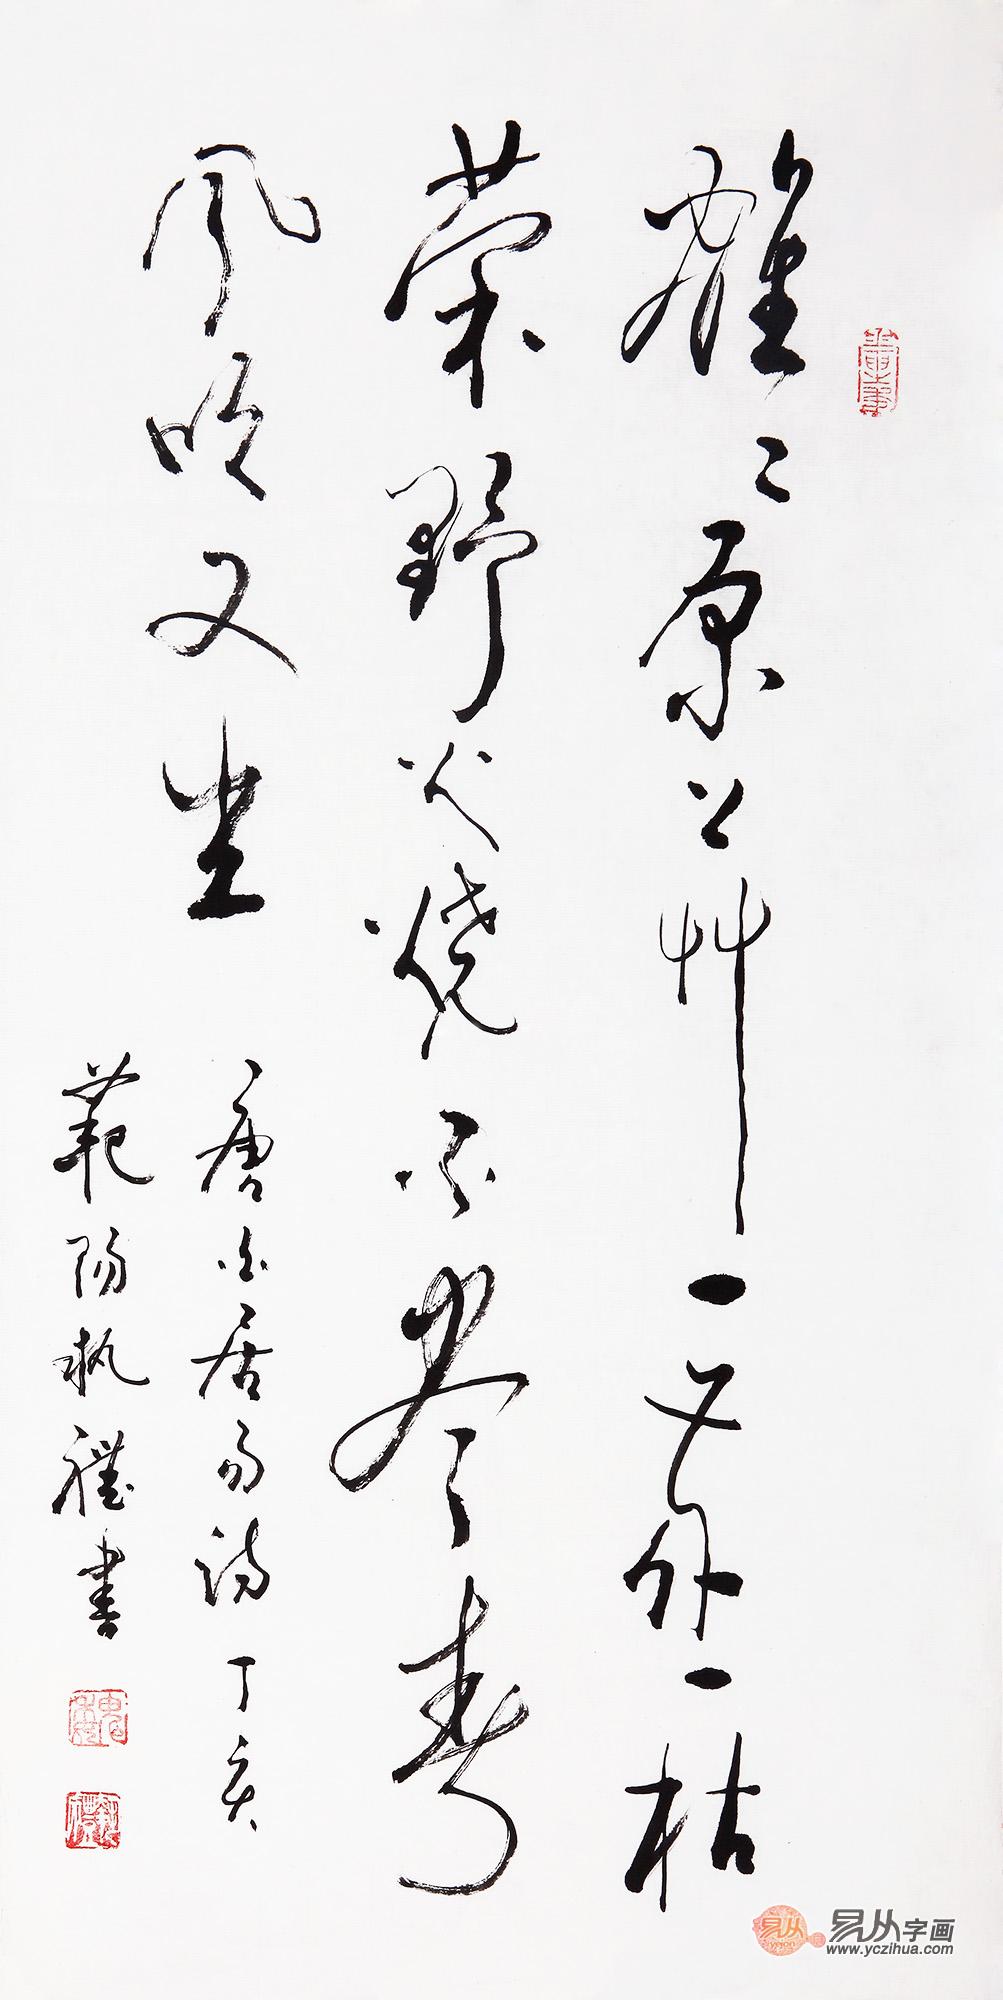 離〻原上草一歲一枯
榮野火燒不盡春
風吹又生
唐白居易詩丁亥
範陽執禮書
易从字画
www.yczihua.com